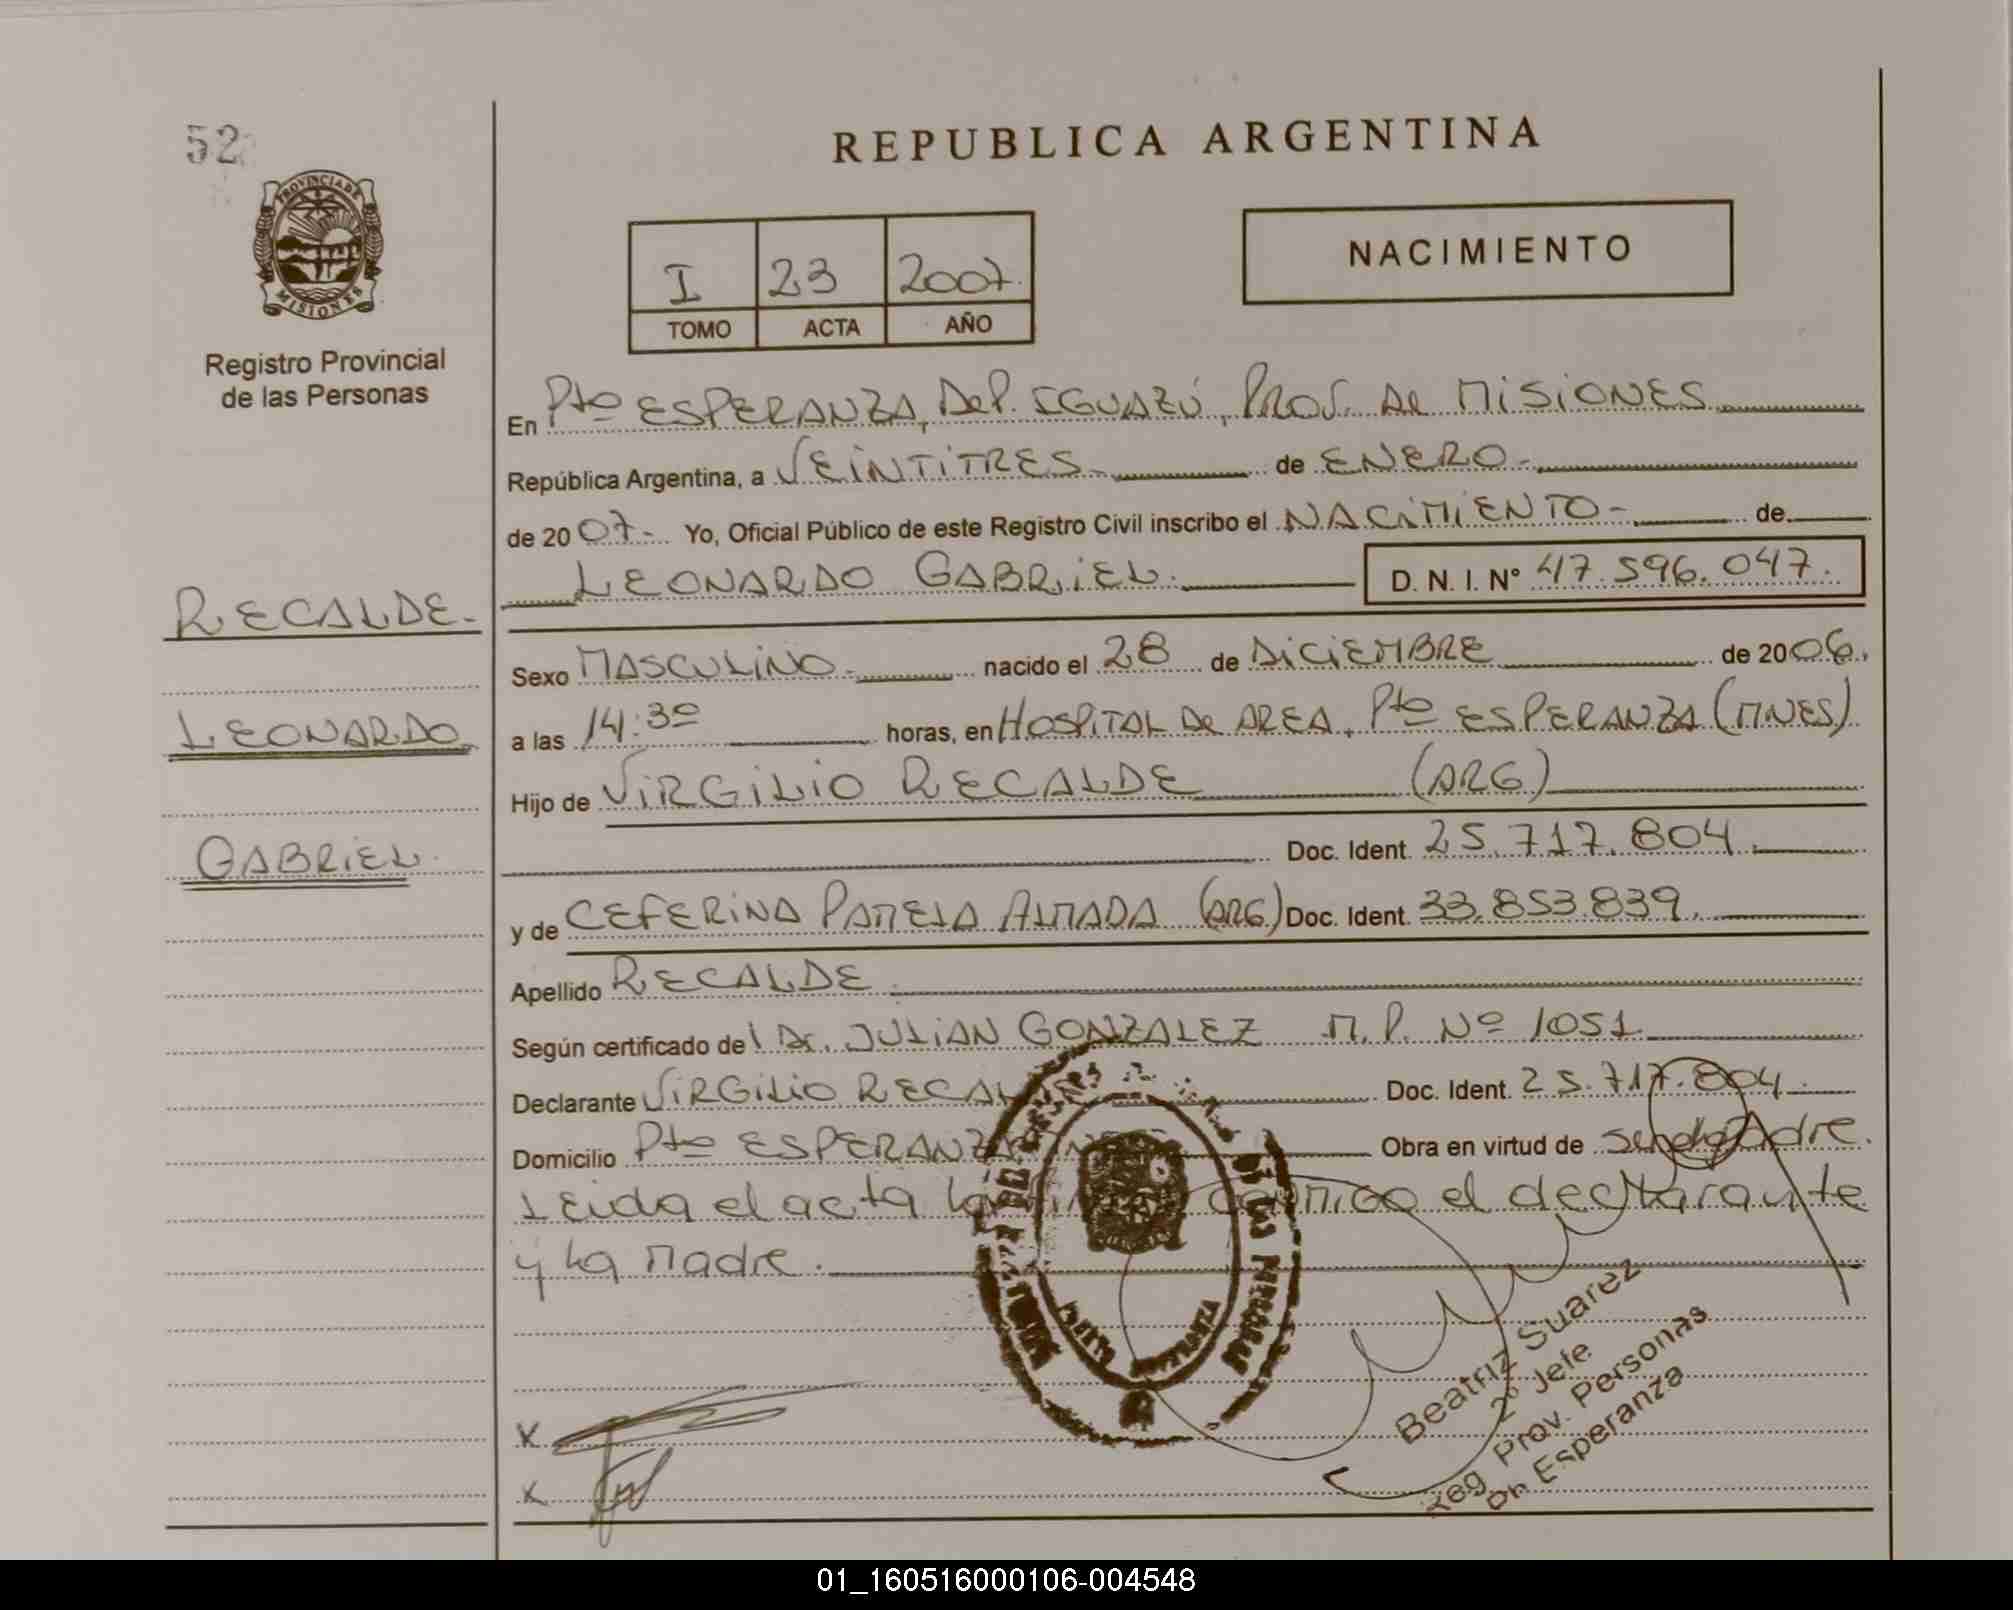 52
PROVINCIA DE
MISIONES
Registro Provincial
de las Personas
RECALDE.
LEONARDO
GABRIEL.
REPUBLICA ARGENTINA
I 23 2007.
TOMO ACTA AÑO
NACIMIENTO
En Pto ESPERANZA, DeP. IGUAZÚ, PROV. de MISIONES
República Argentina, a VEINTITRES de ENERO
de 2007 Yo, Oficial Público de este Registro Civil inscribo el NACIMIENTO de
LEONARDO GABRIEL. D. N. I. N° 47.596.047.
Sexo MASCULINO nacido el 28 de DICIEMBRE de 2006.
a las 14:30 horas, en HOSPITAL de AREA, Pto ESPERANZA (MNES)
Hijo de VIRGILIO RECALDE (ARG)
Doc. Ident. 25.717.804
y de CEFERINA PAMELA ALMADA (ARG) Doc. Ident. 33.853.839
Apellido RECALDE
Según certificado del Dr. JULIAN GONZALEZ M.P. Nº 1051
Declarante VIRGILIO RECAL Doc. Ident. 25.717.804
Domicilio Pto ESPERANZA Obra en virtud de ser padre.
Leida el acta la conmigo el declarante
y la Madre.
DE LAS PERSONAS
X
X
Beatriz Suarez
2º Jefe
Reg. Prov. Personas
Esperanza
01_160516000106-004548